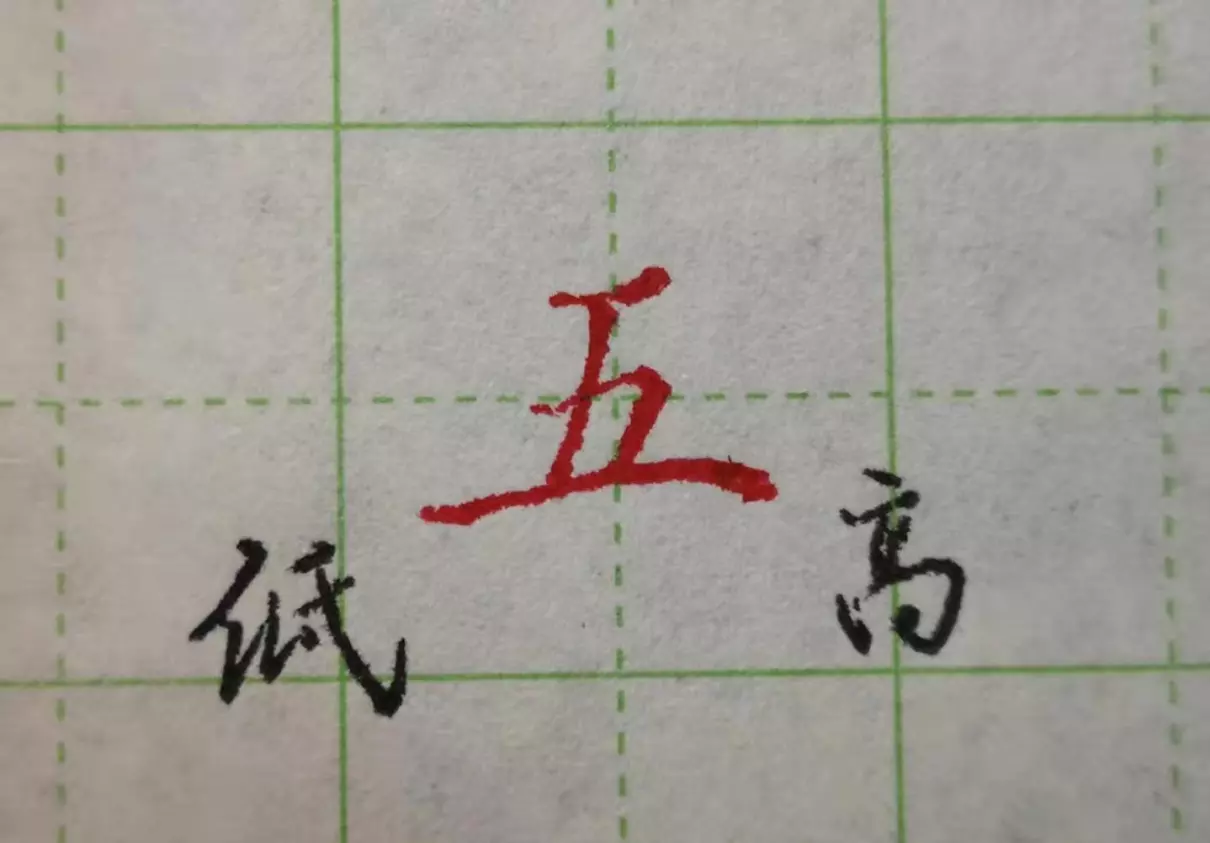 五
低 高